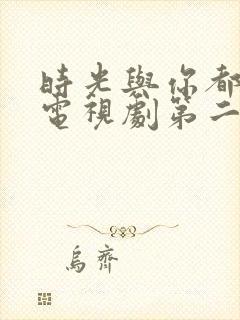 時光與你都
電視劇第二
烏齊